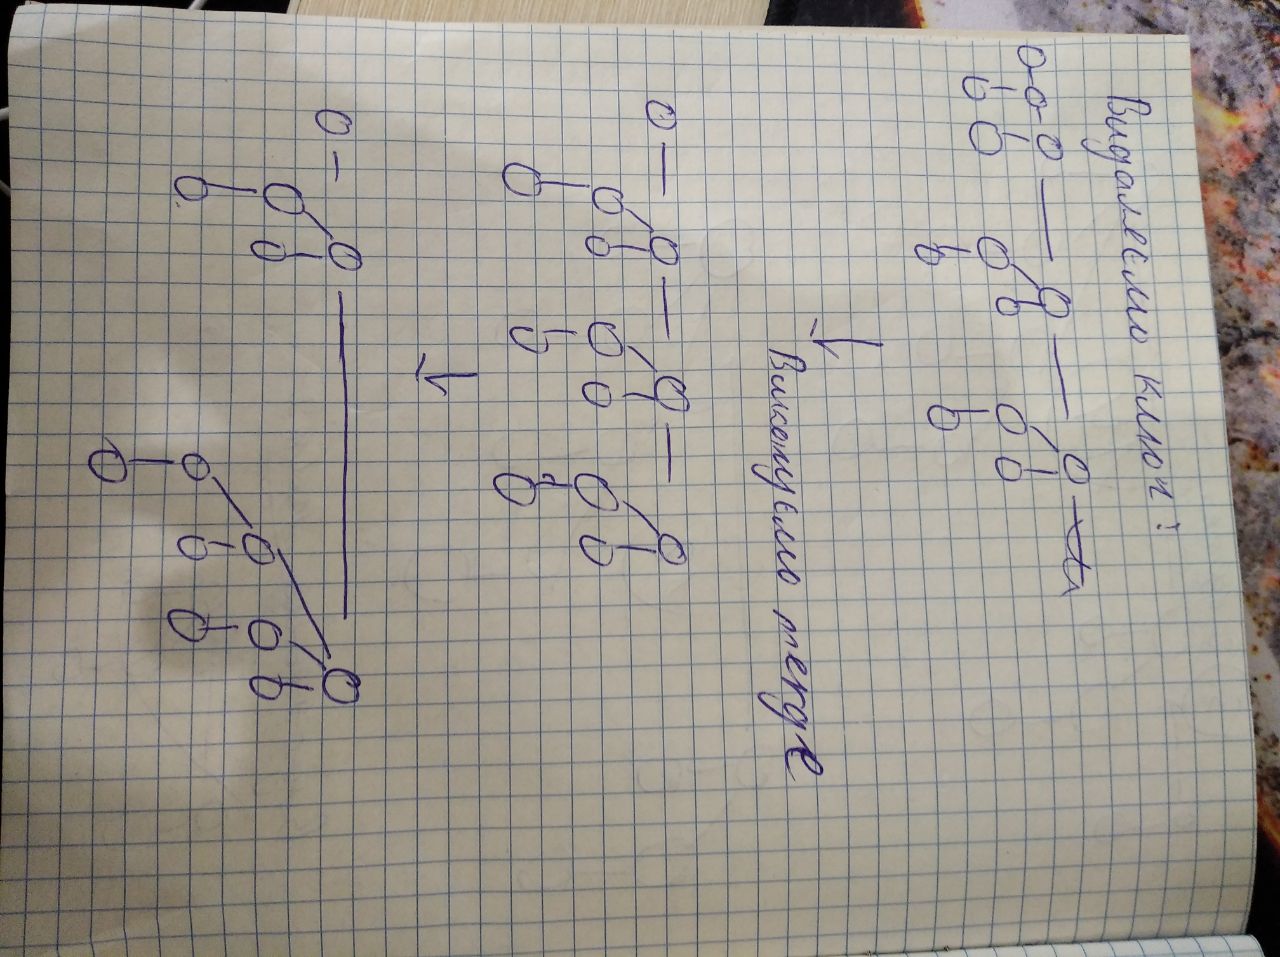 Видаляємо ключ:
Виконуємо merge